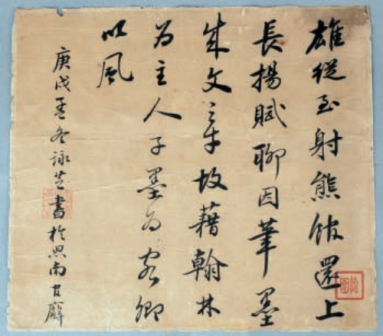 雄從至射熊館還上
長楊賦聊因筆墨
成文章故藉翰林
為主人子墨為客卿
以風
庚戌孟冬詠芝書於思南官廨